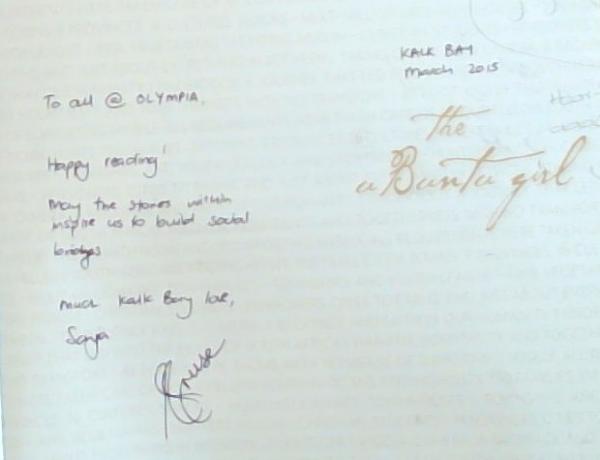 KALK BAY
March 2015
To all @ OLYMPIA,
the
uBuntu girl
Happy reading!
May the stories within
inspire us to build social
bridges
Much Kalk Bay love,
Sonja
Kruse